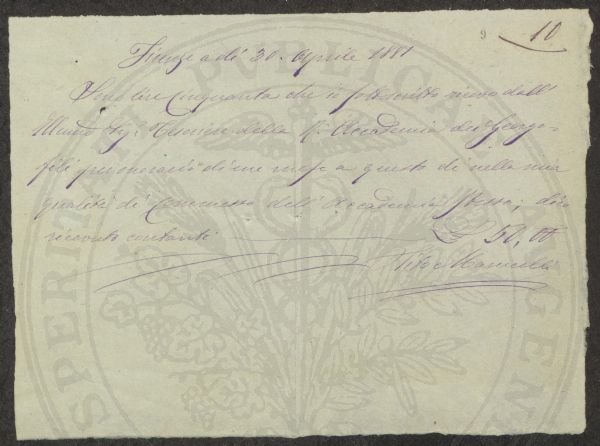 10
9
Firenze a dì 30. Aprile 1881
Sono lire cinquanta che io sottoscritto ricevo dall'
Illmo Sigr. Tesoriere della R. Accademia dei Georgo-
fili per onorario di un mese a questo dì nella mia
qualità di Commesso dell' Accademia stessa; dico
ricevuto contanti £ 50,00
PROSPERITATI PUBLICAE AUGENDAE